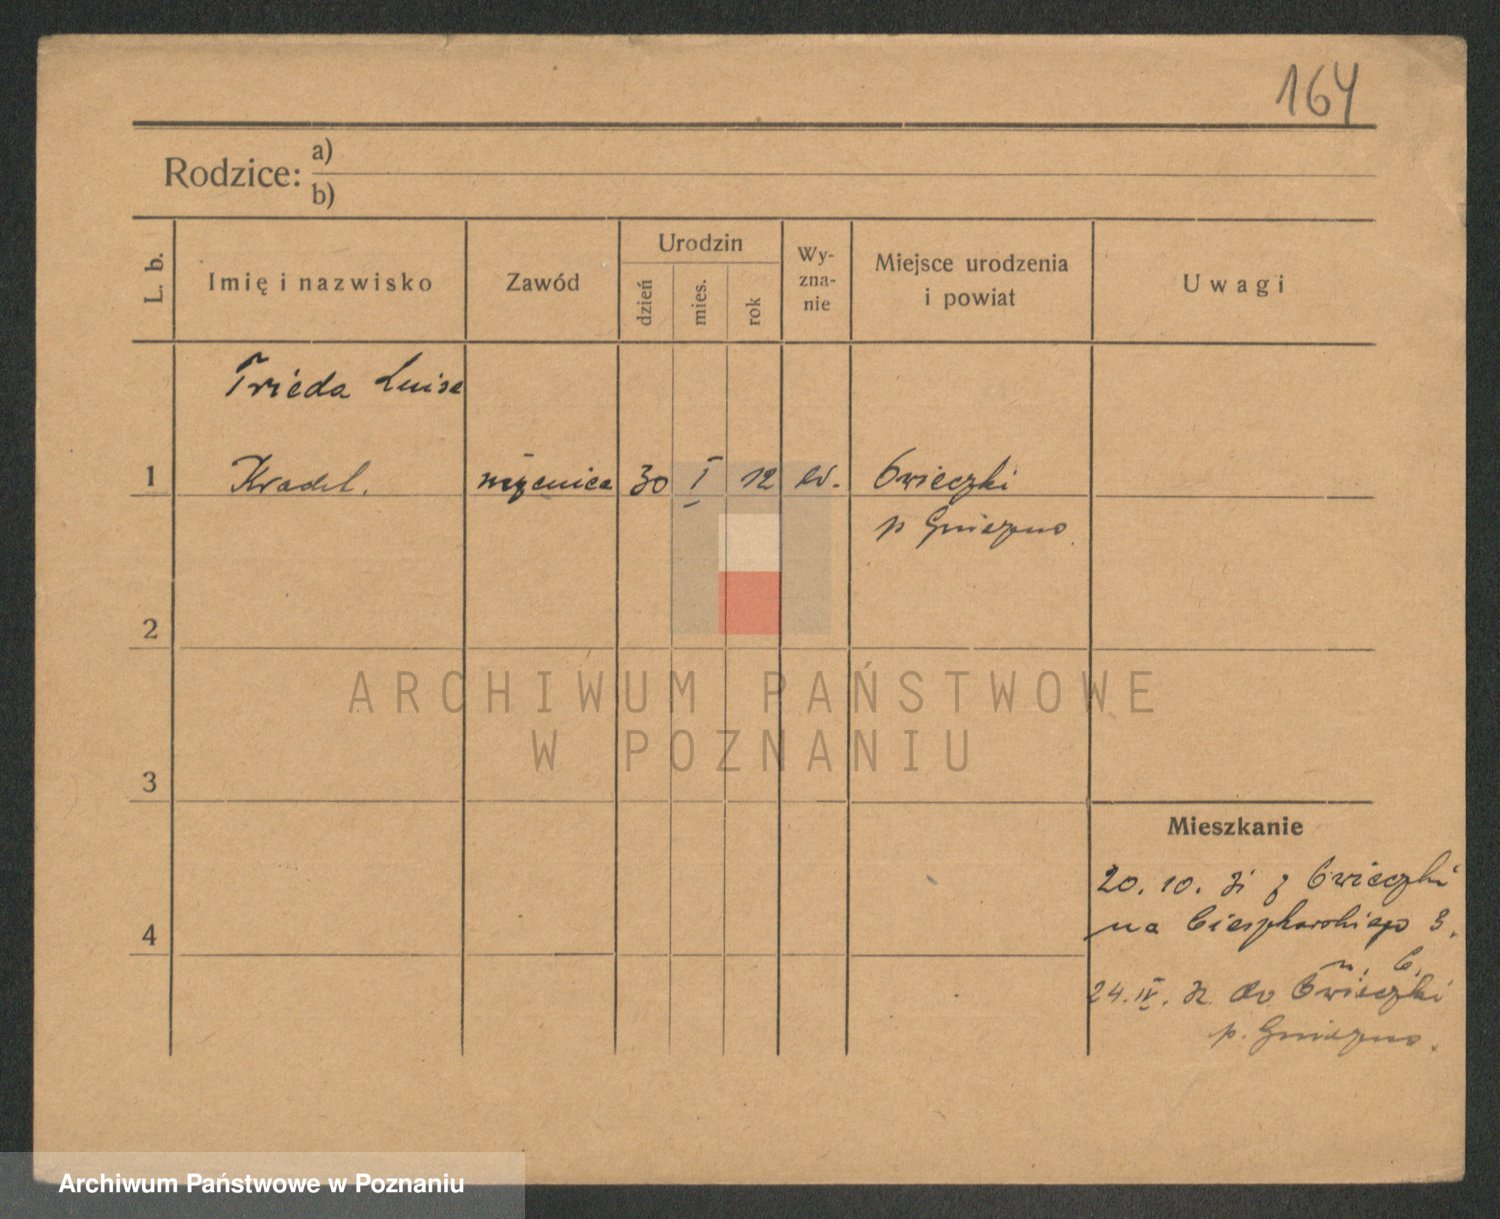 164
Rodzice: a)
b)
L. b.
Imię i nazwisko
Zawód
Urodzin
dzień
mies.
rok
Wy-
zna-
nie
Miejsce urodzenia
i powiat
Uwagi
Frieda Luise
1 Kradel. uczenica 30 I 12 ew. Owieczki
p Gniezno.
2
3
4
Mieszkanie
20. 10. 31 z Owieczki
na Cieszkowskiego 3.
24. IV. 32 do Owieczki
p. Gniezno.
ARCHIWUM PAŃSTWOWE
W POZNANIU
Archiwum Państwowe w Poznaniu